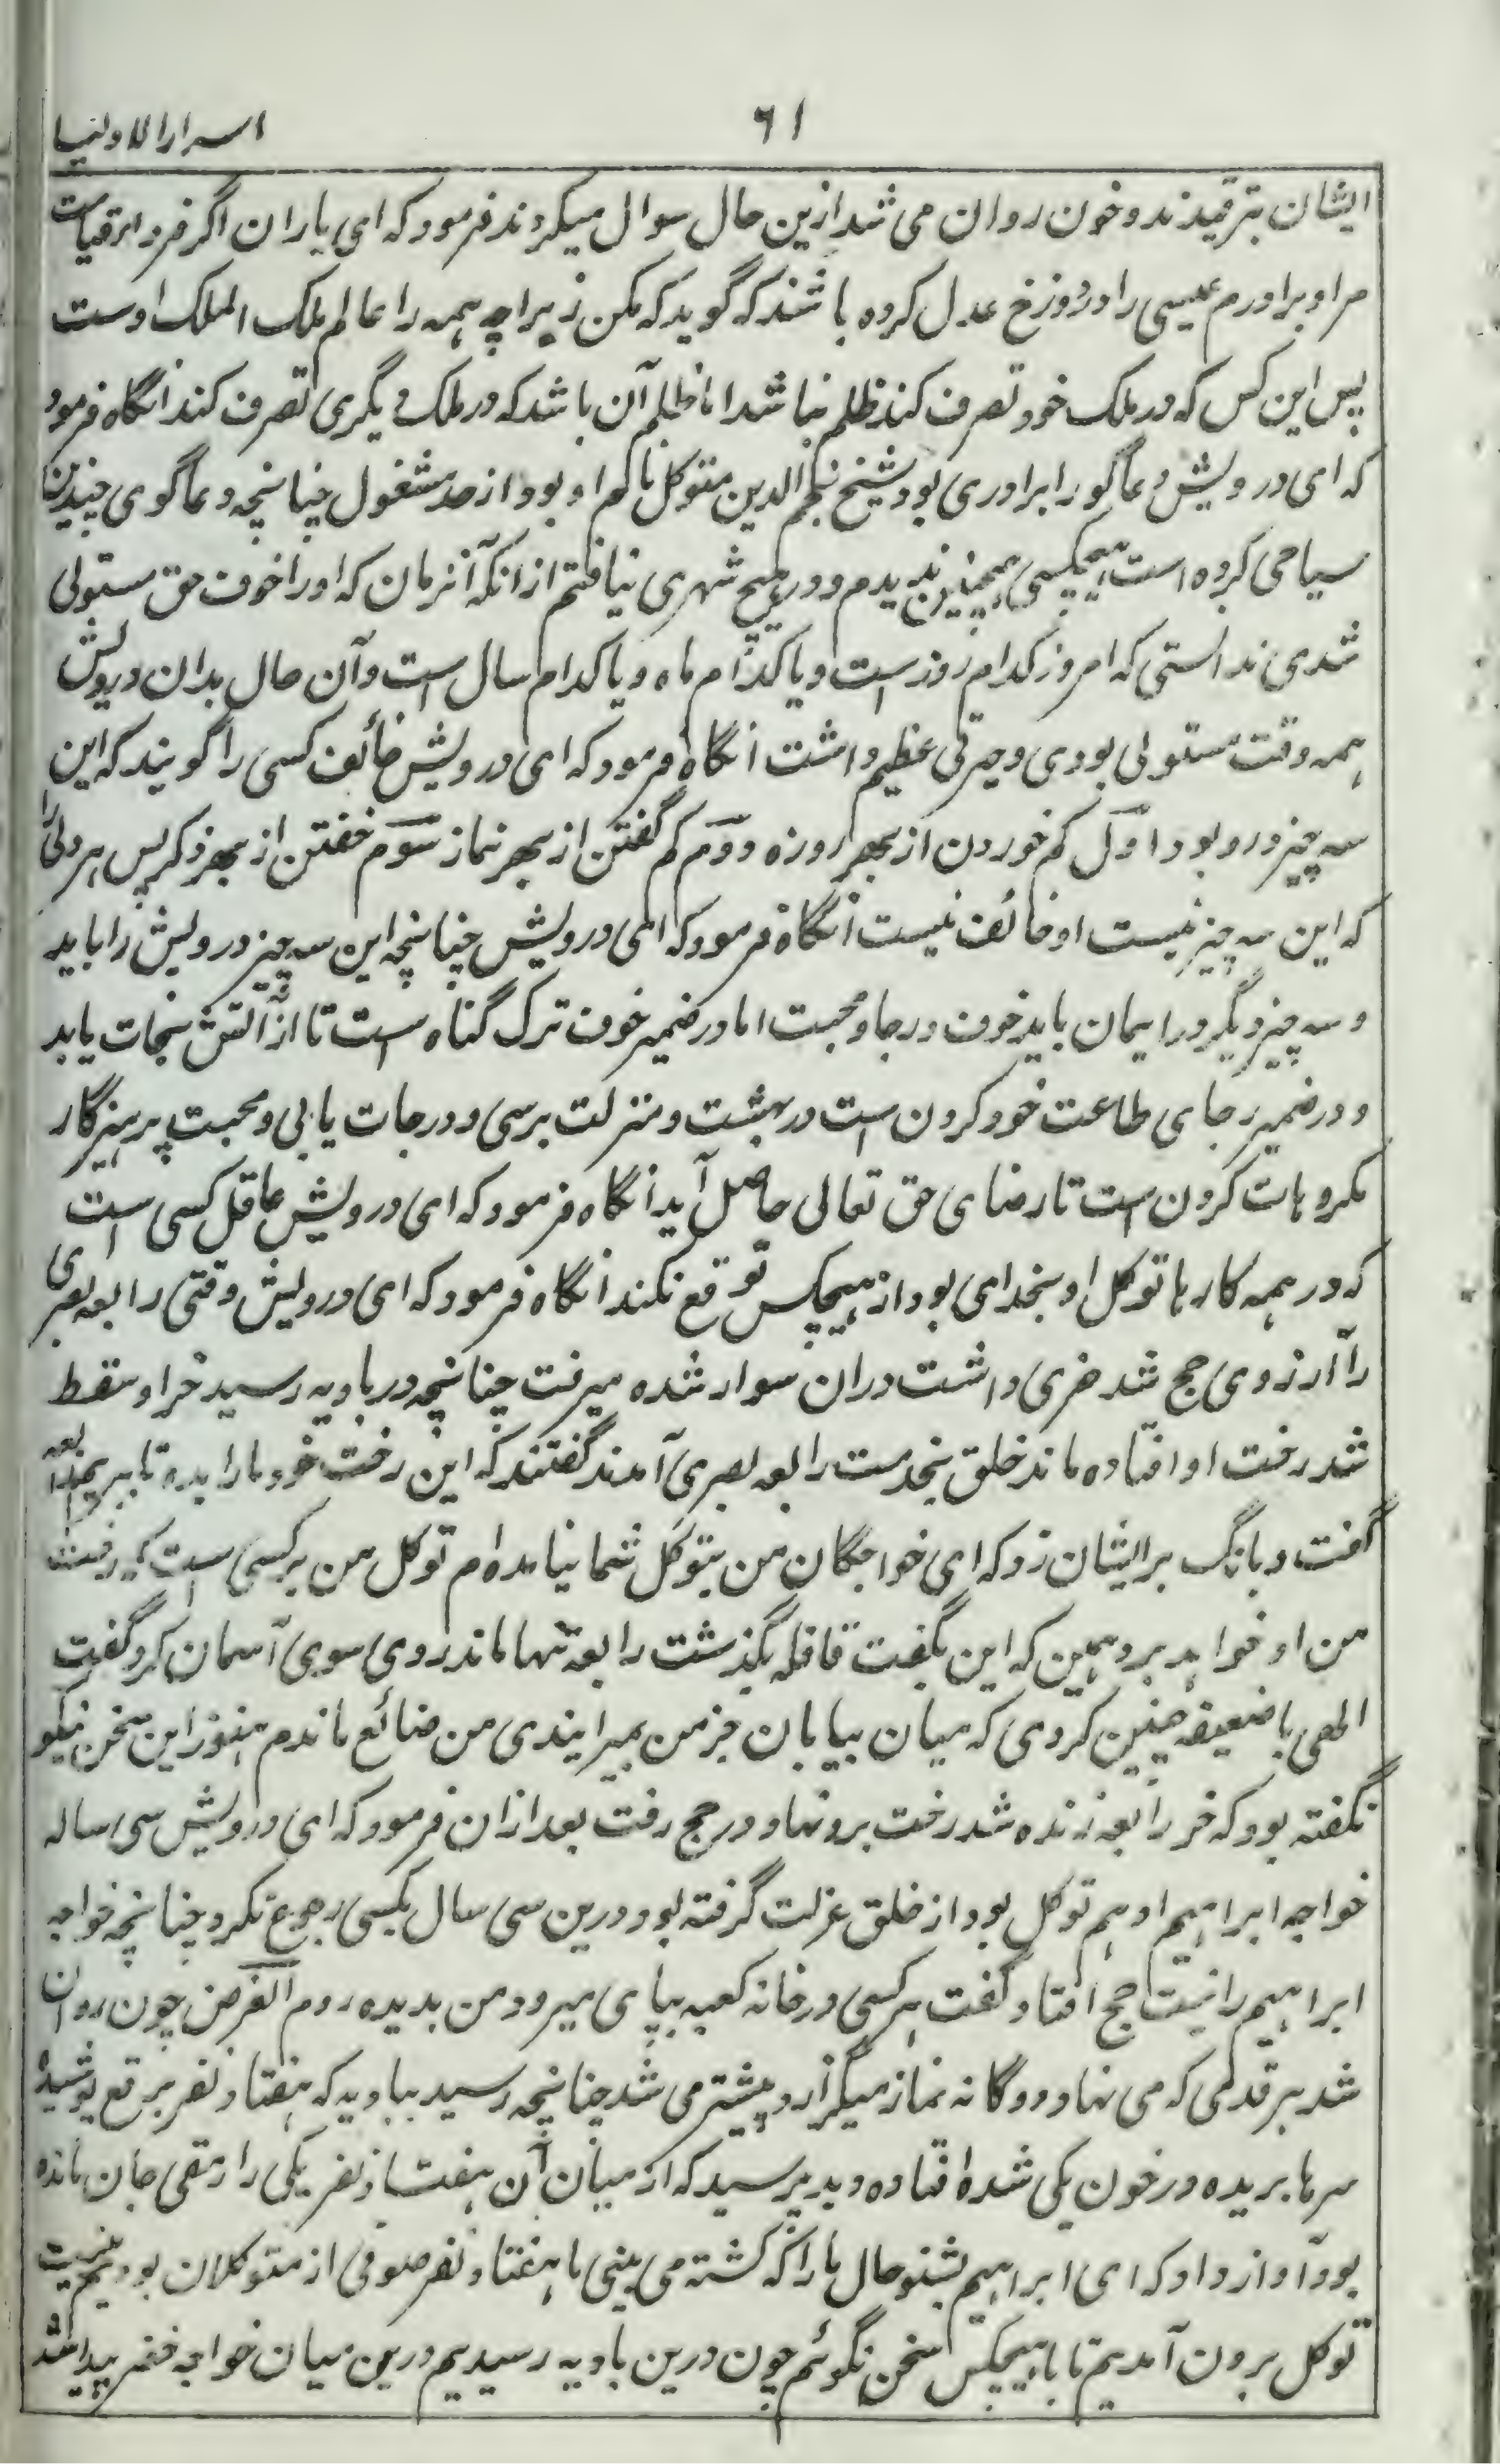 ٦١
اسرار الاولیا
ایشان بترقیدند و خون روان می شد ازین حال سوال میکردند فرمود که ای یاران اگر فردا قیامت
مرا و برادرم عیسی را در دوزخ عدل کرده باشند که گوید که مکن زیراچه همه را عالم ملک الملک اوست
پس این کس که در ملک خود تصرف کند ظلم نباشد اما ظلم آن باشد که در ملک دیگری تصرف کند انگاه فرمود
که ای درویش دعا گو را برادری بود شیخ نجم الدین متوکل نام او بود از حد مشغول چنانچه دعا گوی چندین
سیاحی کرده است هیچکسی همچنین ندیدم و در هیچ شهری نیافتم ازانکه آنزمان که اورا خوف حق مستولی
شدی ندانستی که امروز کدام روز است و یا کدام ماه و یا کدام سال است و آن حال بدان درویش
همه وقت مستولی بودی و حیرتی عظیم داشت انگاه فرمود که ای درویش خائف کسی را گویند که این
سه چیز درو بود اول کم خوردن از بهر روزه دوم کم گفتن از بهر نماز سوم خفتن از بهر ذکر پس هر دلی را
که این سه چیز نیست او خائف نیست انگاه فرمود که ای درویش چنانچه این سه چیز درویش را باید
و سه چیز دیگر در ایمان باید خوف و رجا و محبت اما در ضمیر خوف ترک گناه است تا از آتش نجات یابد
و در ضمیر رجای طاعت خود کردن است در بهشت و منزلت برسی و درجات یابی و محبت پرهیزگار
مکروهات کردن است تا رضای حق تعالی حاصل آید انگاه فرمود که ای درویش عاقل کسی است
که در همه کارها توکل او بخدای بود از هیچکس توقع نکند انگاه فرمود که ای درویش وقتی رابعه بصری
را آرزوی حج شد خری داشت دران سوار شده میرفت چنانچه در بادیه رسید خر او سقط
شد رخت او افتاده ماند خلق بخدمت رابعه بصری آمدند گفتند که این رخت خود مارا بده تا ببریم رابعه
گفت و بانگ بر ایشان زد که ای خواجگان من بتوکل شما نیامده ام توکل من بر کسی است که رخت
من او خواهد برد همین که این بگفت قافله بگذشت رابعه تنها ماند روی سوی آسمان کرد گفت
الهی با ضعیفه چنین کردی که میان بیابان خر من بمیرانیدی من ضائع ماندم هنوز این سخن نیکو
نگفته بود که خر رابعه زنده شد رخت برو نهاد و در حج رفت بعد ازان فرمود که ای درویش سی ساله
خواجه ابراهیم ادهم توکل بود از خلق عزلت گرفته بود و درین سی سال بکسی رجوع نکرد چنانچه خواجه
ابراهیم را نیت حج افتاد گفت هر کسی در خانه کعبه بپای میرود من بدیده روم الغرض چون روان
شد بر قدمی که می نهاد دوگانه نماز میگزارد پیشتر می شد چنانچه رسید ببادیه که هفتاد نفر برقع پوشیده
سرها بریده در خون یکی شده افتاده دید پرسید که از میان آن هفتاد نفر یکی را رمقی جان مانده
بود آواز داد که ای ابراهیم بشنو حال ما را که کشته می بینی ما هفتاد نفر صوفی از متوکلان بودیم به نیت
توکل برون آمدیم تا با هیچکس سخن نگوئم چون درین بادیه رسیدیم درین میان خواجه خضر پیدا شد